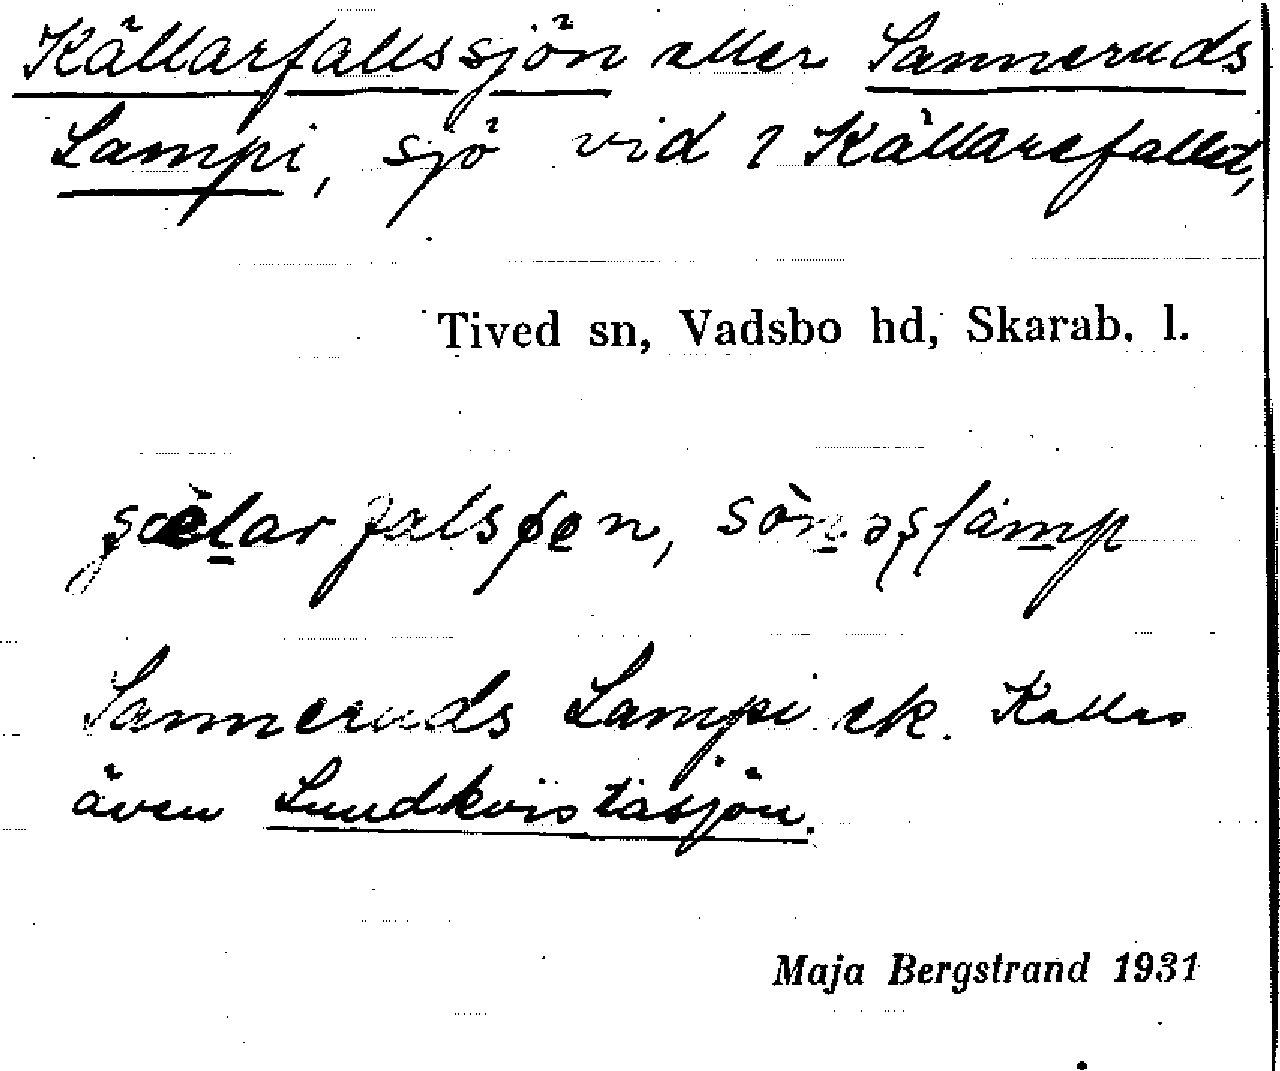 Källarfallssjön eller Sanneruds
Lampi, sjö vid 1 Källarefallet,
Tived sn, Vadsbo hd, Skarab. l.
Sanneruds Lampi ek. Kallas
även Lundkvistasjön.
Maja Bergstrand 1931